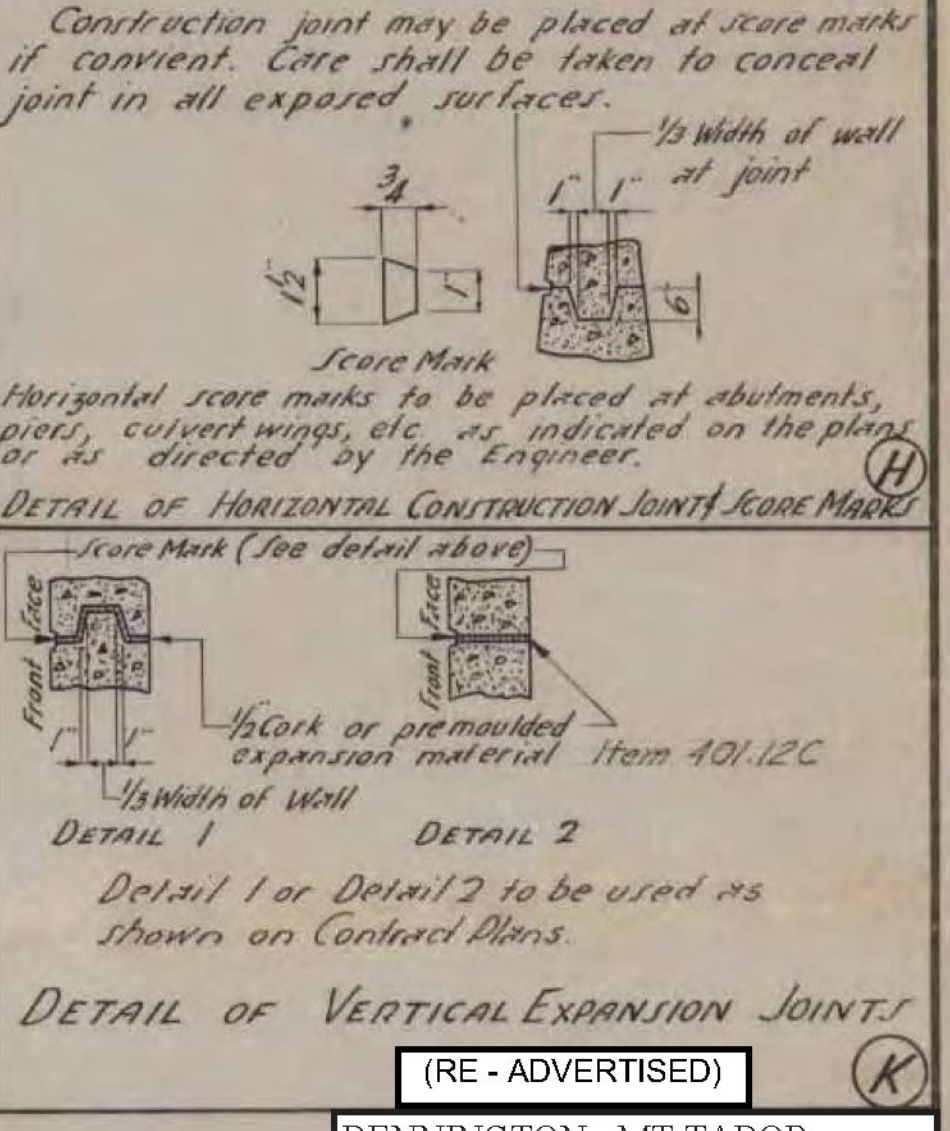 Construction joint may be placed at score marks
if convient. Care shall be taken to conceal
joint in all exposed surfaces.
1/3 Width of wall
at joint
3/4
1" 1"
1 1/2"
1"
6"
Score Mark
Horizontal score marks to be placed at abutments,
piers, culvert wings, etc. as indicated on the plans
or as directed by the Engineer.
H
DETAIL OF HORIZONTAL CONSTRUCTION JOINT & SCORE MARKS
Score Mark (See detail above)
Front Face
Front Face
1/2" Cork or premoulded
expansion material Item 401.12C
1" 1"
1/3 Width of Wall
DETAIL 1 DETAIL 2
Detail 1 or Detail 2 to be used as
shown on Contract Plans.
DETAIL OF VERTICAL EXPANSION JOINTS
K
(RE - ADVERTISED)